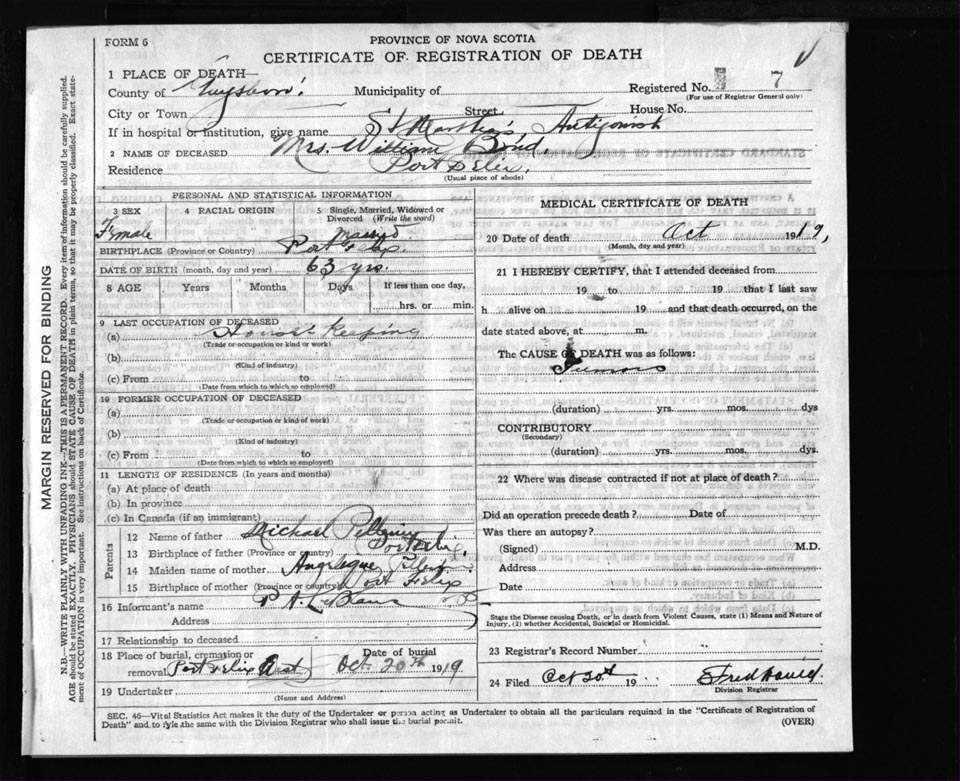 FORM 6
PROVINCE OF NOVA SCOTIA
CERTIFICATE OF REGISTRATION OF DEATH
1 PLACE OF DEATH—
County of Guysboro Municipality of Registered No. 7
(For use of Registrar General only)
City or Town Street House No.
If in hospital or institution, give name St Martha's, Antigonish
2 NAME OF DECEASED Mrs. William Bond.
Residence Port Felix.
(Usual place of abode)
PERSONAL AND STATISTICAL INFORMATION
3 SEX
Female
4 RACIAL ORIGIN
5 Single, Married, Widowed or
Divorced (Write the word)
Married
BIRTHPLACE (Province or Country) Port Felix
DATE OF BIRTH (month, day and year) 63 yrs
8 AGE Years Months Days If less than one day,
hrs. or min.
9 LAST OCCUPATION OF DECEASED
(a) House Keeping
(Trade or occupation or kind or work)
(b)
(Kind of industry)
(c) From to
(Date from which to which so employed)
10 FORMER OCCUPATION OF DECEASED
(a)
(Trade or occupation or kind of work)
(b)
(Kind of industry)
(c) From to
(Date from which to which so employed)
11 LENGTH OF RESIDENCE (In years and months)
(a) At place of death
(b) In province
(c) In Canada (if an immigrant)
Parents
12 Name of father Michael
13 Birthplace of father (Province or country) Port Felix,
14 Maiden name of mother Angelique
15 Birthplace of mother (Province or country) Port Felix
16 Informant's name P. A. LeBlanc P.P.
Address
17 Relationship to deceased
18 Place of burial, cremation or
removal Port Felix East
Date of burial
Oct. 20th 1919
19 Undertaker
(Name and Address)
MEDICAL CERTIFICATE OF DEATH
20 Date of death Oct 1919,
(Month, day and year)
21 I HEREBY CERTIFY, that I attended deceased from
19 to 19 that I last saw
h alive on 19 and that death occurred, on the
date stated above, at m.
The CAUSE OF DEATH was as follows:
Tumors
(duration) yrs. mos. dys
CONTRIBUTORY
(Secondary)
(duration) yrs. mos. dys.
22 Where was disease contracted if not at place of death?
Did an operation precede death? Date of
Was there an autopsy?
(Signed) M.D.
Address
Date
State the Disease causing Death, or in death from Violent Causes, state (1) Means and Nature of
Injury, (2) whether Accidental, Suicidal or Homicidal.
23 Registrar's Record Number
24 Filed Oct 20th 19 Fred David.
Division Registrar
SEC. 46—Vital Statistics Act makes it the duty of the Undertaker or person acting as Undertaker to obtain all the particulars required in the "Certificate of Registration of
Death" and to file the same with the Division Registrar who shall issue the burial permit. (OVER)
MARGIN RESERVED FOR BINDING
N.B.—WRITE PLAINLY WITH UNFADING INK—THIS IS A PERMANENT RECORD. Every item of information should be carefully supplied.
AGE should be stated EXACTLY. PHYSICIANS should STATE CAUSE OF DEATH in plain terms, so that it may be properly classified. Exact state-
ment of OCCUPATION is very important. See instructions on back of Certificate.